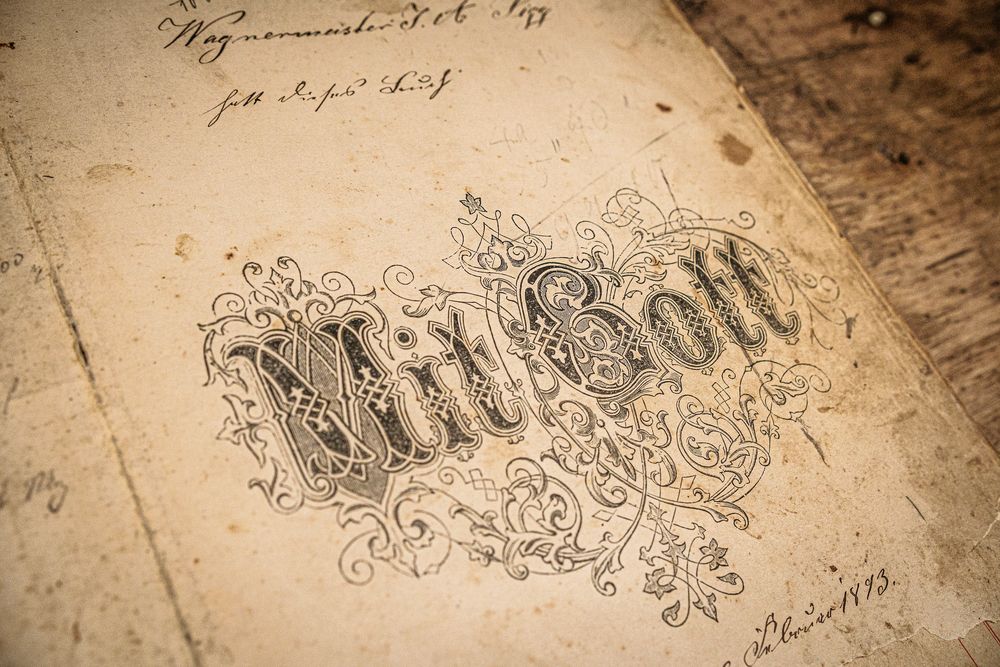 Wagnermeister J.
hatt dieses Buch
Mit Gott
Februar 1893.